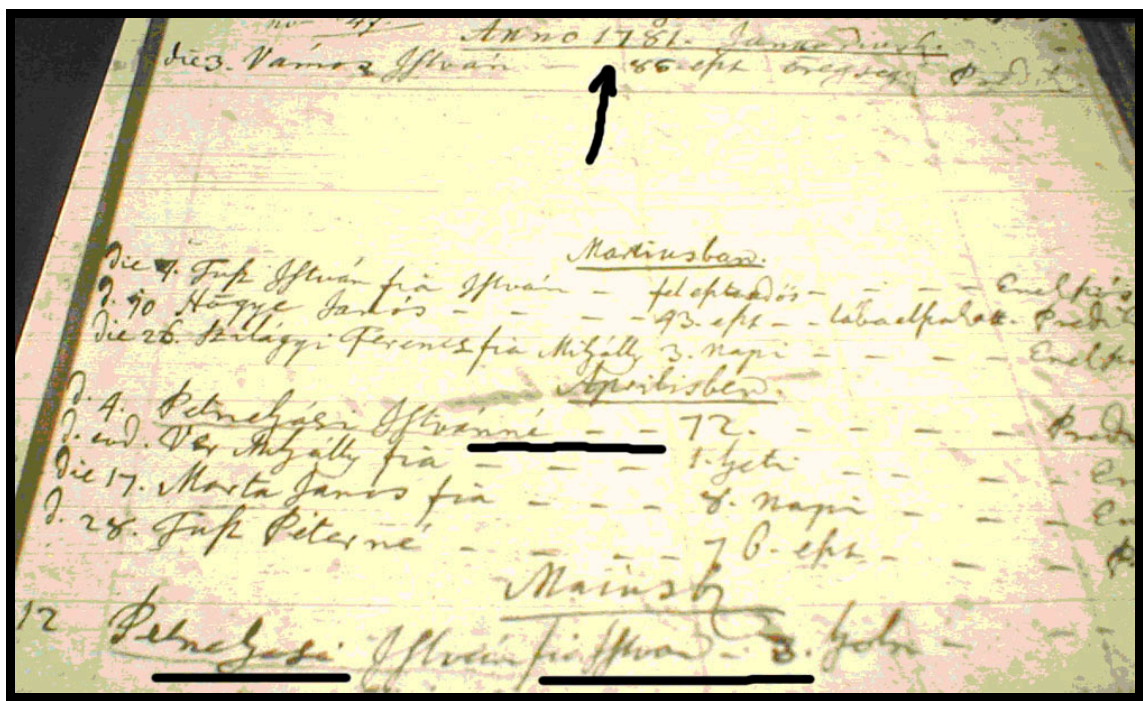 Anno 1781.
die 3. Vámos István — 86. eszt öregseg. Predik.
Martiusban.
die 9. Fust István fia István — fel esztendős — — — Enekszós
d. 10 Högye János — — — 93. eszt — —
die 26. Szilágyi Ferencz fia Mihálly 3. napi — — — —
Aprilisben.
d. 4. Petneházi Istvánné — — 72. — — — —
d. eod. Ver Mihálly fia — — — — 1. heti — —
die 17. Marta János fia — — — 8. napi — —
d. 28. Fust Péterné — — — — 76. eszt —
Maiusb
12 Petneházi István fia István — 3. holn —